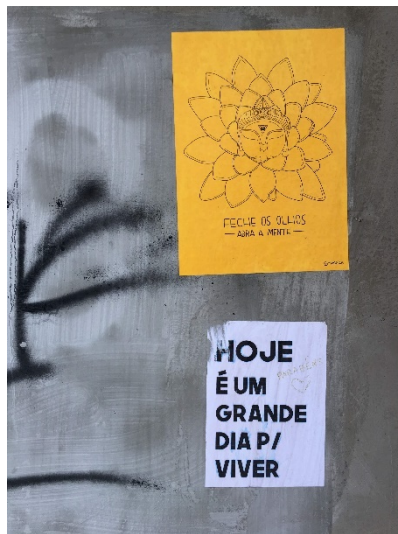 FECHE OS OLHOS
— ABRA A MENTE —
HOJE
É UM
GRANDE
DIA P/
VIVER